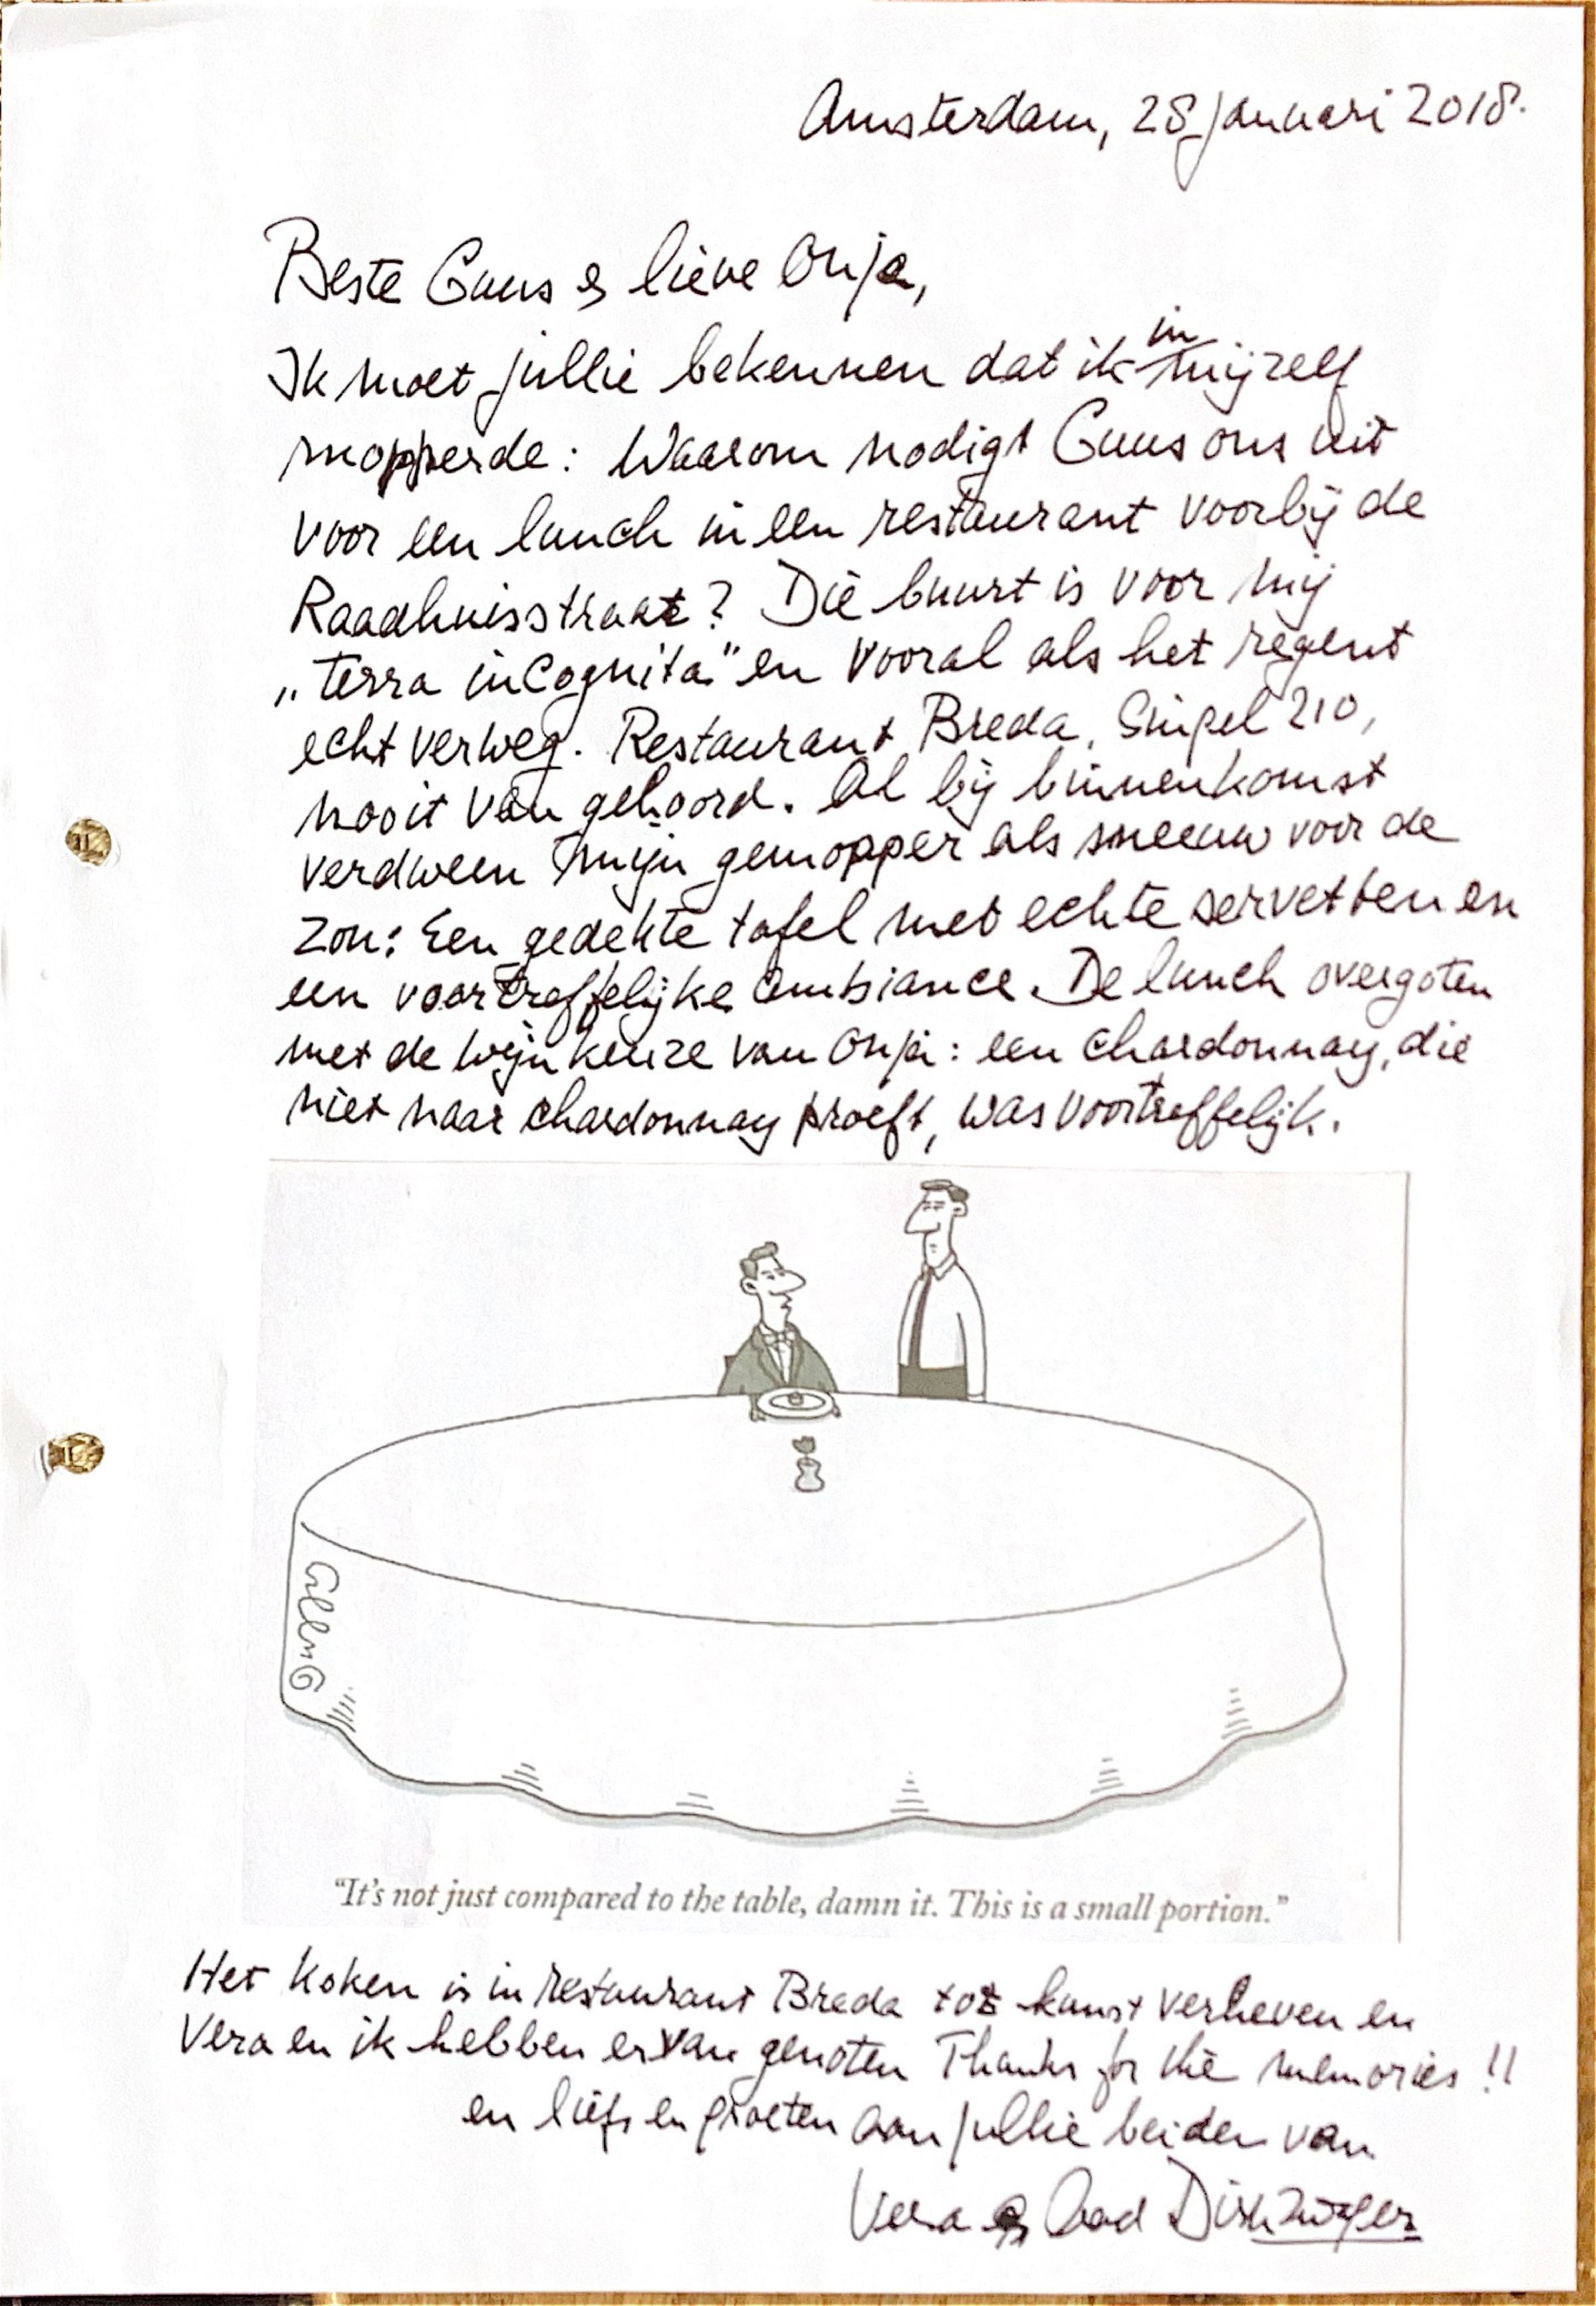 Amsterdam, 28 januari 2018.
Beste Guus & lieve Anja,
Ik moet jullie bekennen dat ik in mijzelf
mopperde: Waarom nodigt Guus ons uit
voor een lunch in een restaurant voorbij de
Raadhuisstraat? Die buurt is voor mij
„terra incognita" en vooral als het regent
echt verweg. Restaurant Breda, Singel 210,
nooit van gehoord. Al bij binnenkomst
verdween mijn gemopper als sneeuw voor de
zon: Een gedekte tafel met echte servetten en
een voortreffelijke ambiance. De lunch overgoten
met de wijnkeuze van Anja: een Chardonnay, die
niet naar chardonnay proeft, was voortreffelijk.
"It's not just compared to the table, damn it. This is a small portion."
Het koken is in restaurant Breda tot kunst verheven en
Vera en ik hebben ervan genoten Thanks for the memories !!
en liefs en groeten aan jullie beiden van
Vera &